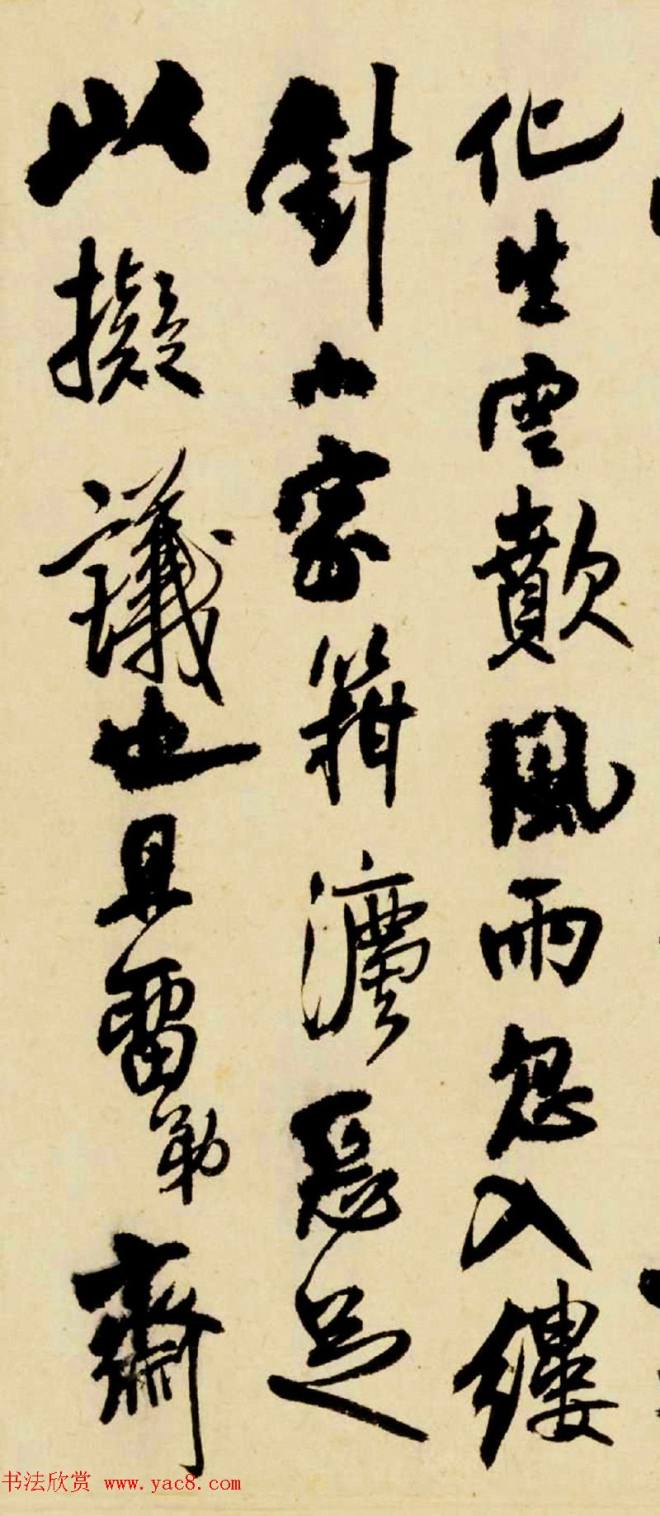 化生雲歕風雨忽入縷
針小家籍灋惡足
以擬議也且留勒齋
书法欣赏 www.yac8.com